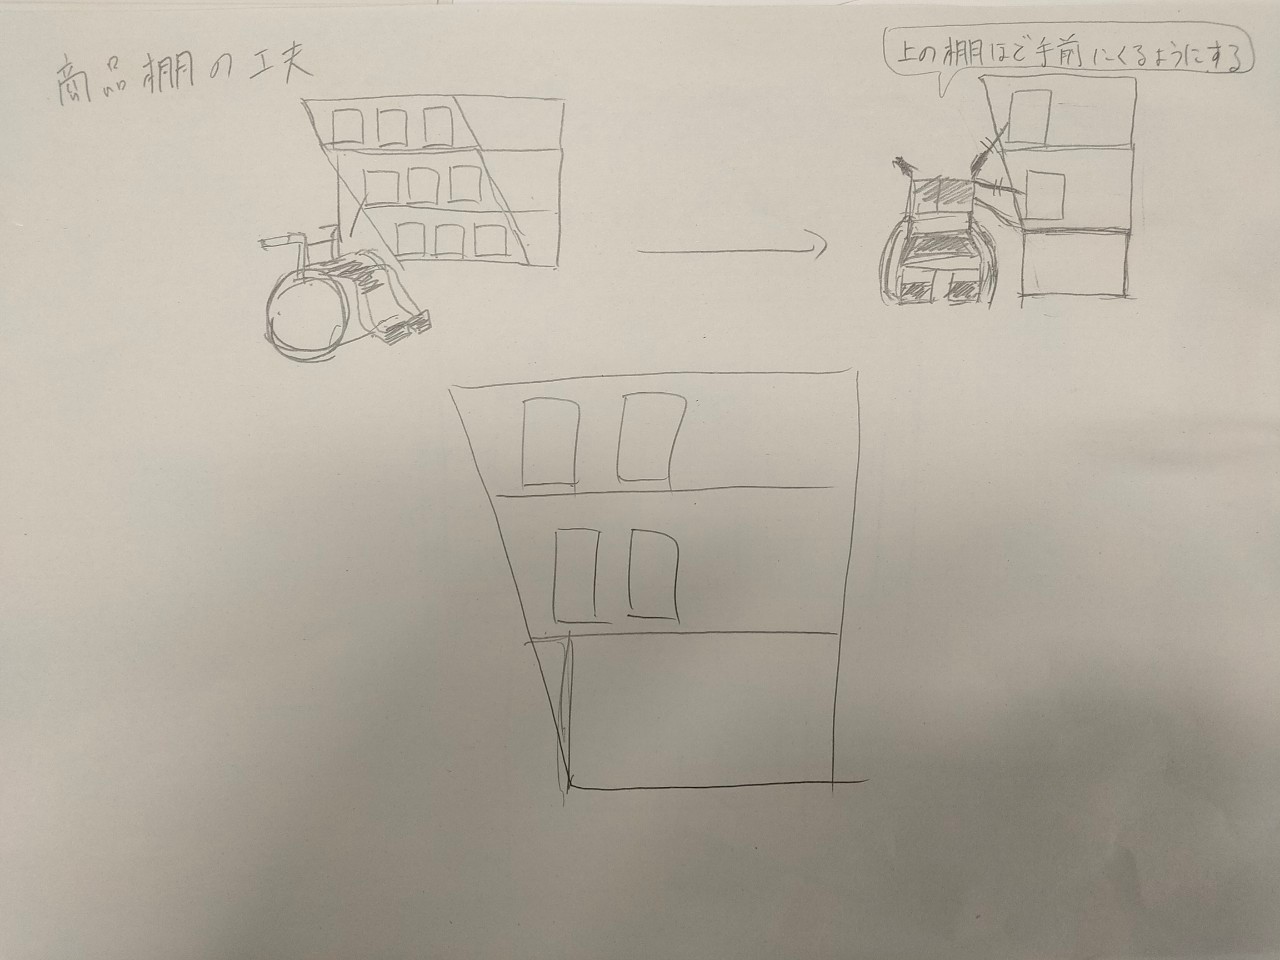 商品棚の工夫
上の棚ほど手前にくるようにする